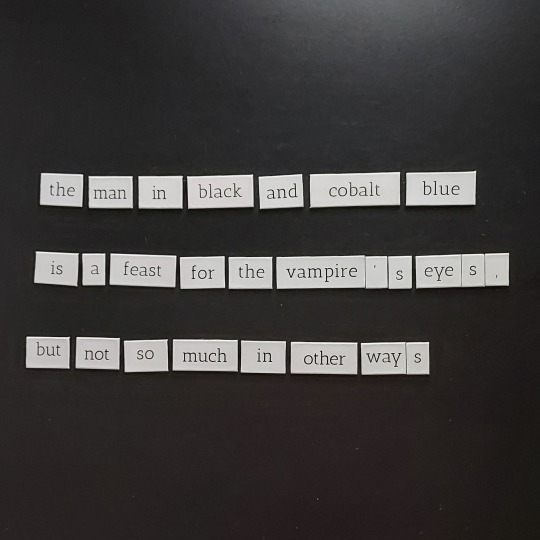 the man in black and cobalt blue
is a feast for the vampire's eyes,
but not so much in other ways